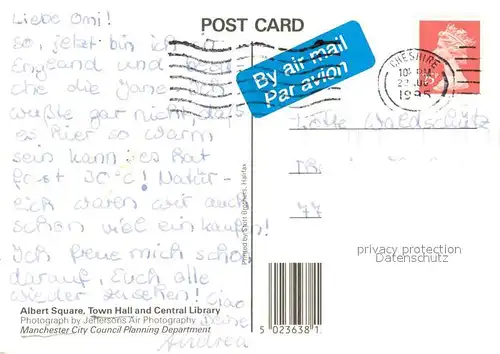 POST CARD
Liebe Omi!
So, jetzt bin ich in
England und
che die Jane. Ich
wußte gar nicht, daß
es hier so warm
sein kann; es hat
fast 30°C! Natür-
lich waren wir auch
schon viel einkaufen!
Ich freue mich schon
darauf, Euch alle
wieder zu sehen! Ciao
Deine
Andrea
By air mail
Par avion
CHESHIRE
PM
1995
77
Printed by Halifax
privacy protection
Datenschutz
Albert Square, Town Hall and Central Library
Photograph by Jeffersons Air Photography
Manchester City Council Planning Department
5 023638 1